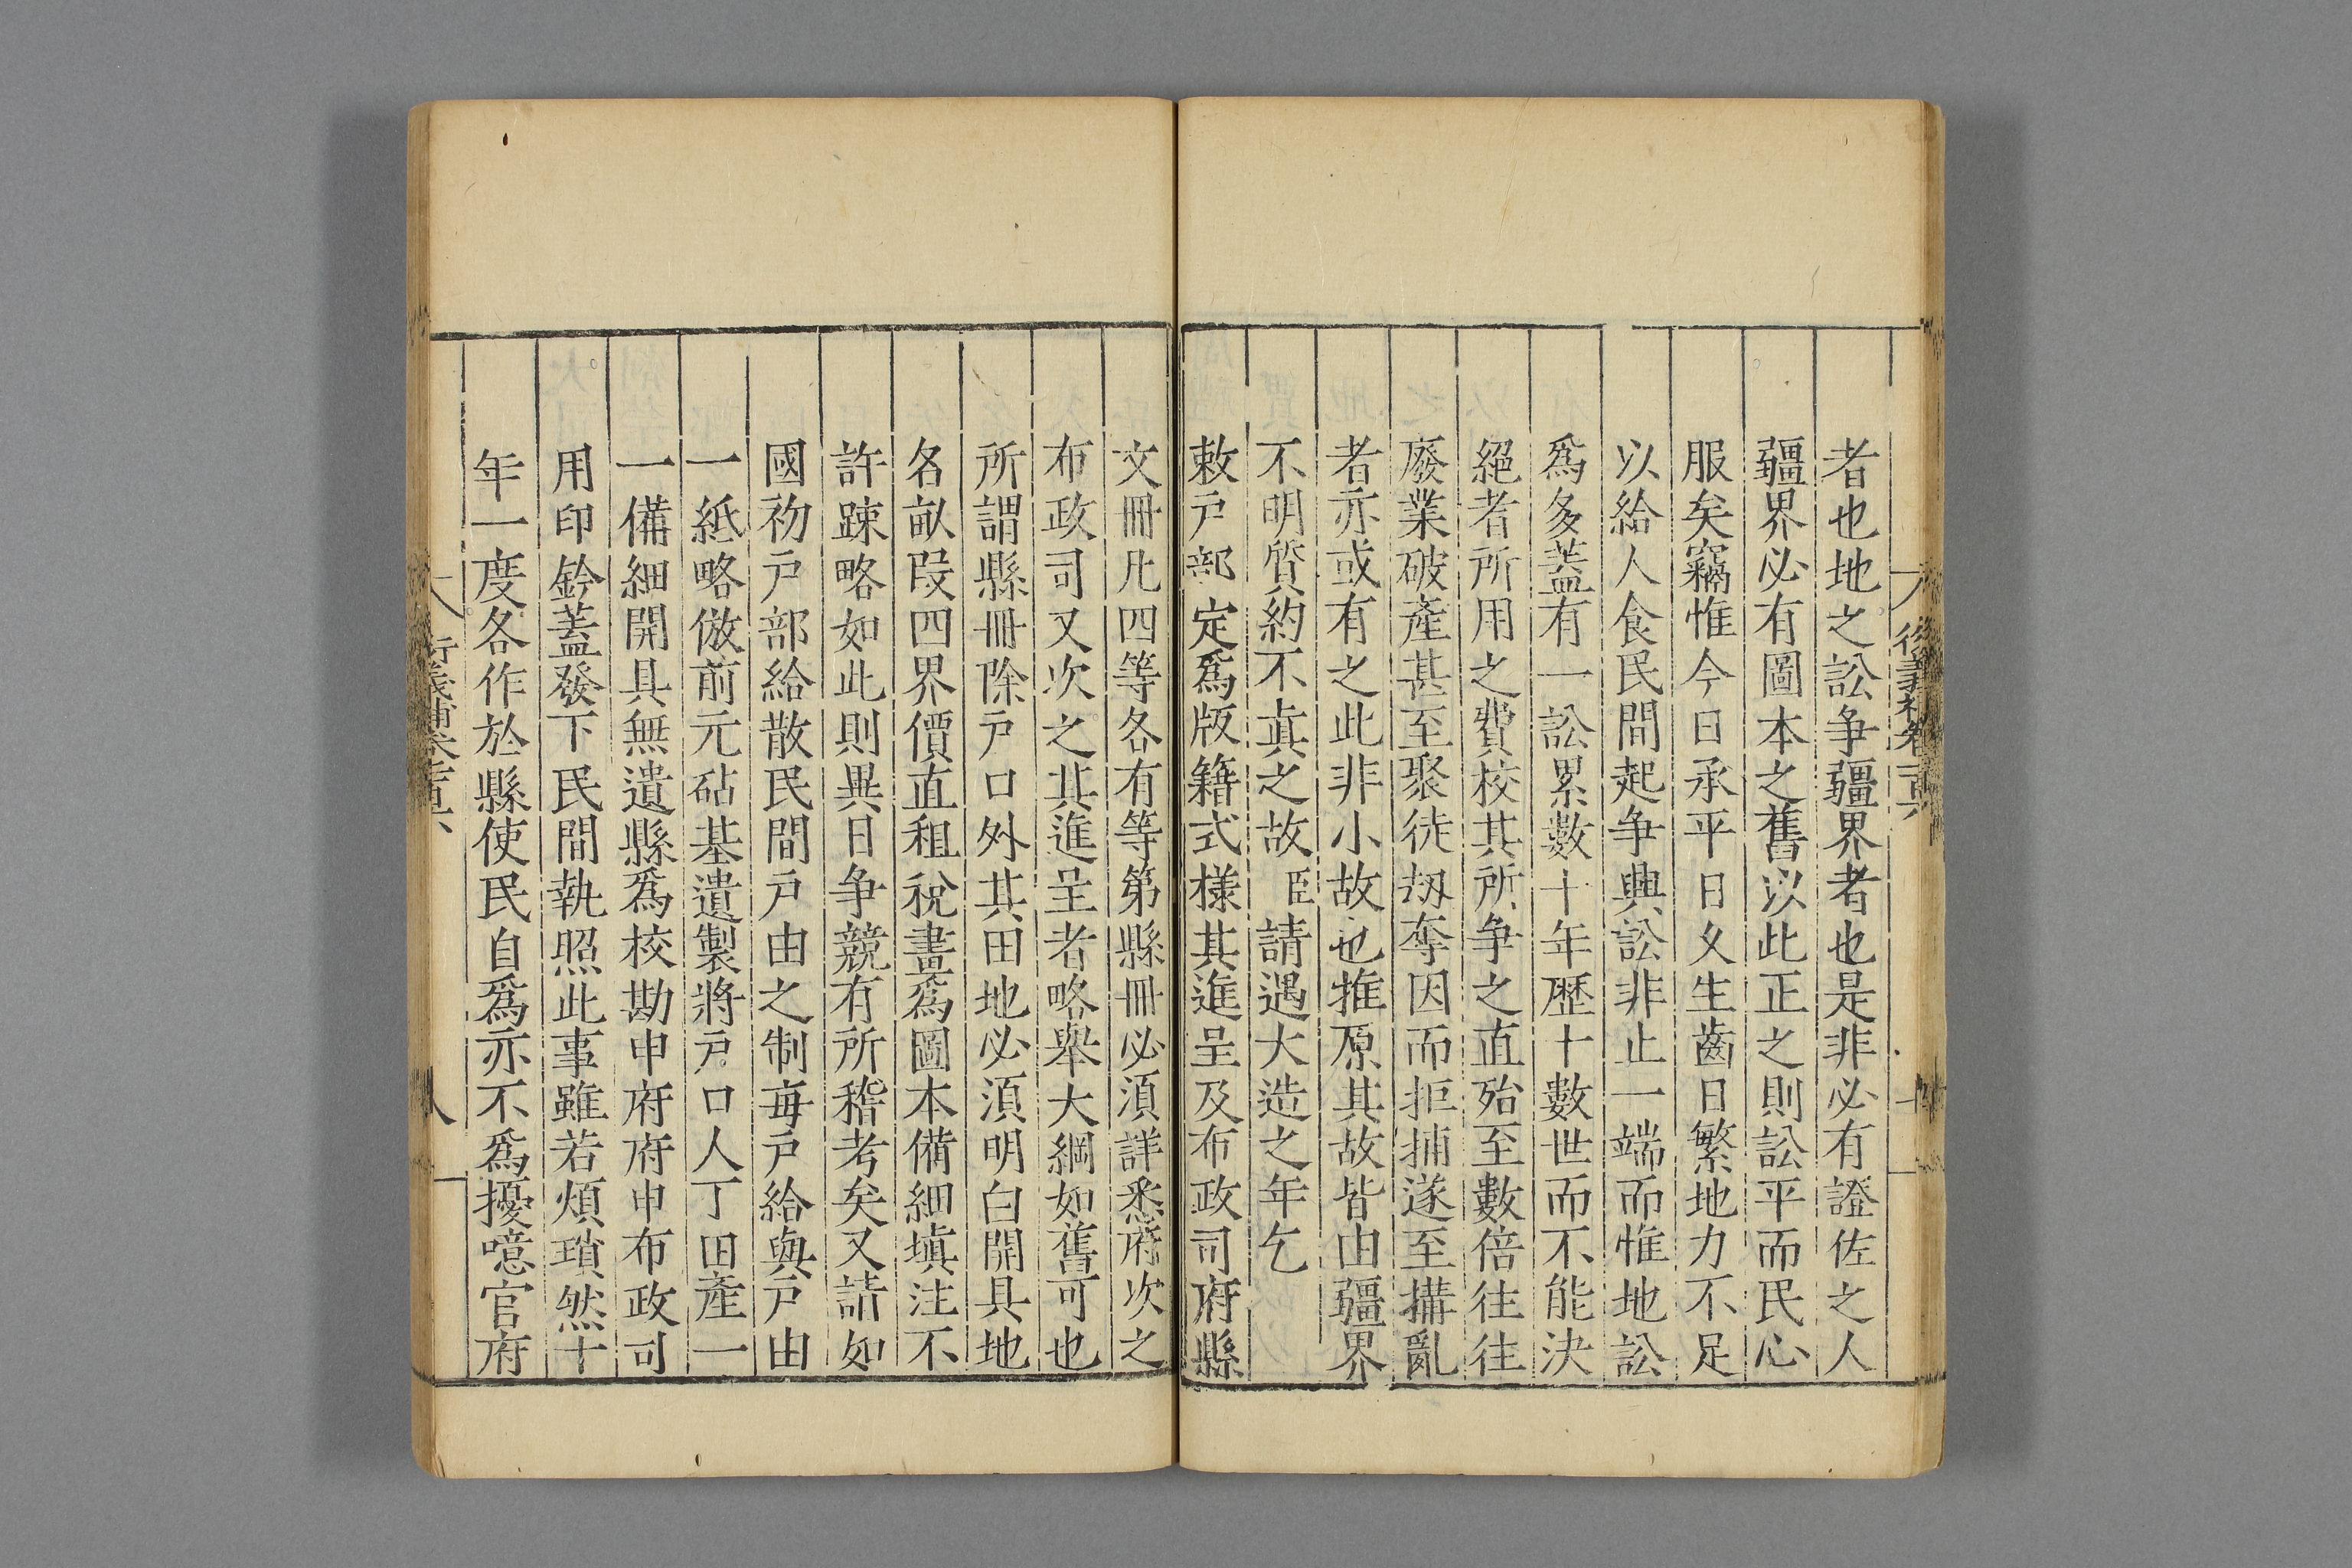 者也地之訟争疆界者也是非必有證佐之人
疆界必有圖本之舊以此正之則訟平而民心
服矣竊惟今日承平日久生齒日繁地力不足
以給人食民間起争興訟非止一端而惟地訟
爲多蓋有一訟累數十年歷十數世而不能決
絕者所用之費校其所争之直殆至數倍往往
廢業破產甚至聚徒刼奪因而拒捕遂至搆亂
者亦或有之此非小故也推原其故皆由疆界
不明質約不真之故臣請遇大造之年乞
敕戶部定爲版籍式様其進呈及布政司府縣
文冊凡四等各有等第縣冊必須詳悉府次之
布政司又次之其進呈者略舉大綱如舊可也
所謂縣冊除戶口外其田地必須明白開具地
名畝段四界價直租稅畫爲圖本備細塡注不
許踈略如此則異日争競有所稽考矣又請如
國初戶部給散民間戶由之制每戶給與戶由
一紙略倣前元砧基遺製將戶口人丁田產一
一備細開具無遺縣爲校勘申府府申布政司
用印鈐蓋發下民間執照此事雖若煩瑣然十
年一度各作於縣使民自爲亦不爲擾噫官府